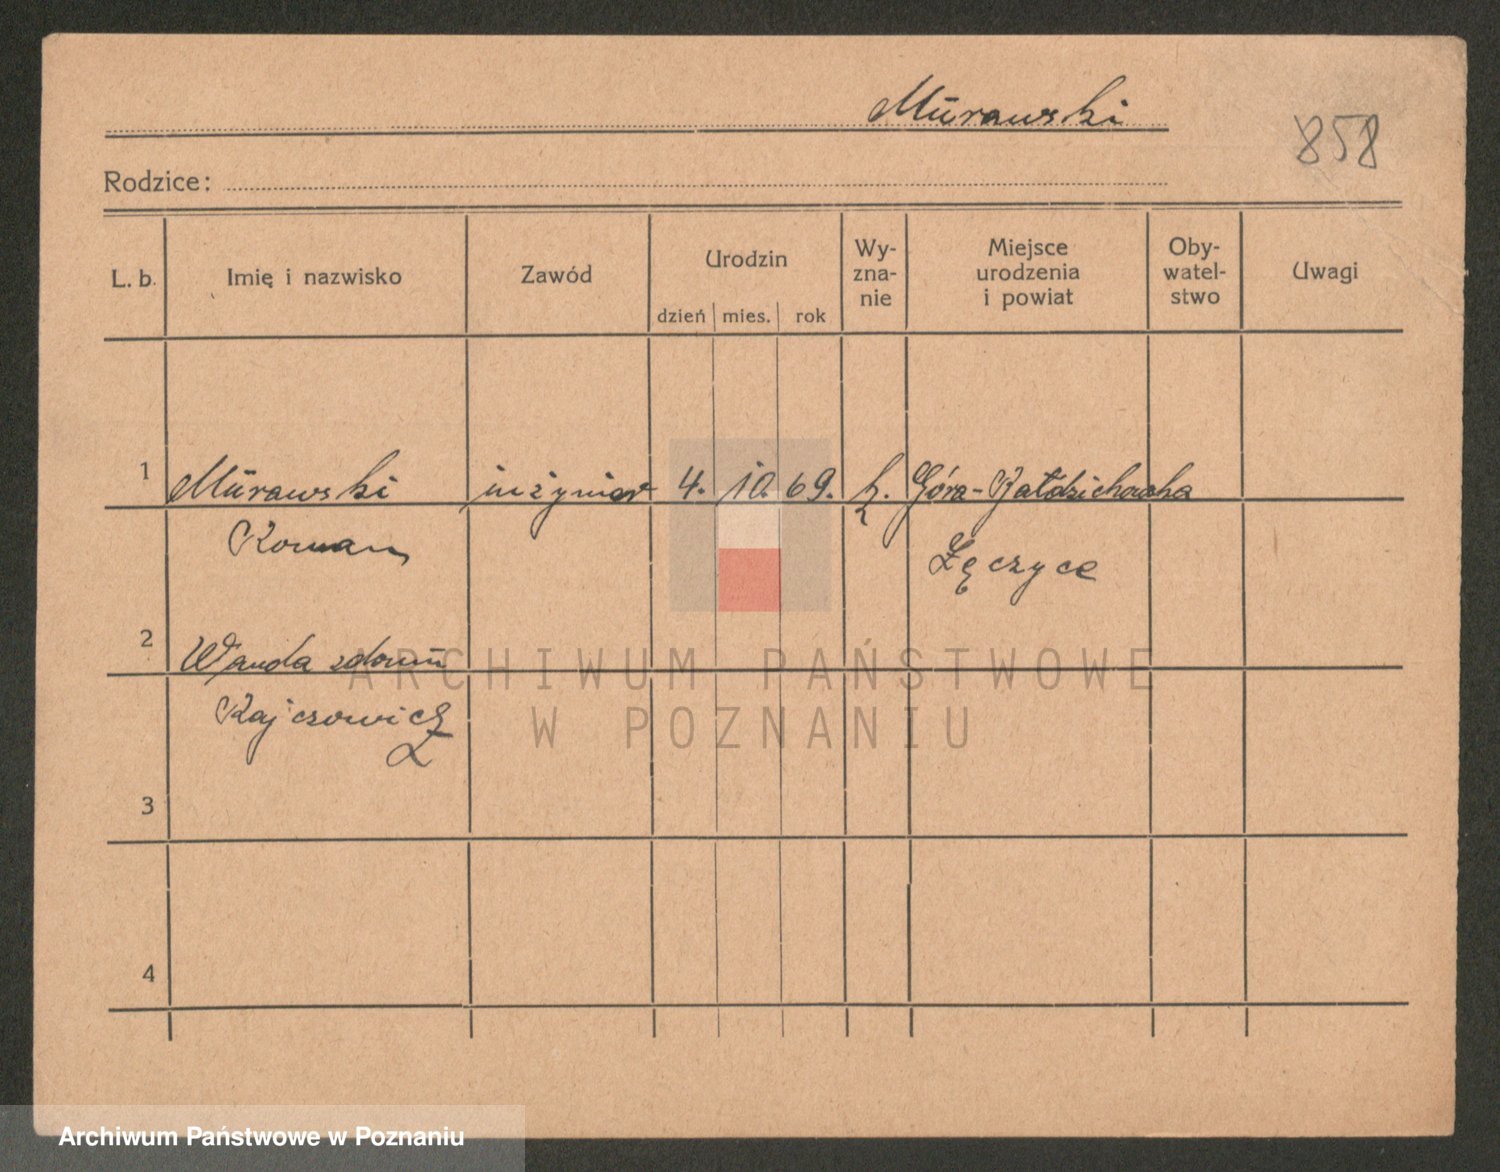 Murawski
858
Rodzice:
L. b. Imię i nazwisko Zawód Urodzin dzień mies. rok Wy-zna-nie Miejsce urodzenia i powiat Oby-watel-stwo Uwagi
1 Murawski inżynier 4. 10. 69. k. Góra-Bałdrzychowska
Roman Łęczyce
2 Wanda zdomu
Rajczowicz
3
4
ARCHIWUM PAŃSTWOWE
W POZNANIU
Archiwum Państwowe w Poznaniu